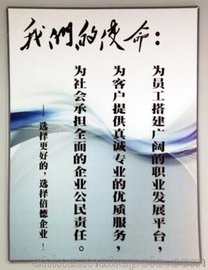 我們的使命：
为员工搭建广阔的职业发展平台，
为客户提供真诚专业的优质服务，
为社会承担全面的企业公民责任。
——选择更好的，选择倍德企业！